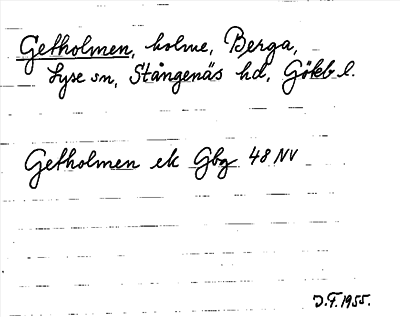 Getholmen, holme, Berga,
Lyse sn, Stångenäs hd, Gökb l.
Getholmen ek Gbg 48 NV
D.F. 1955.